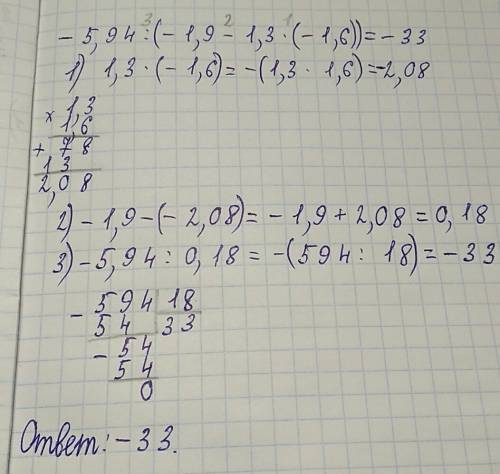 3 2 1
- 5,94 : (- 1,9 - 1,3 · (-1,6)) = - 33
1) 1,3 · (- 1,6) = -(1,3 · 1,6) = -2,08
× 1,3
1,6
+ 78
13
2,08
2) - 1,9 - (- 2,08) = - 1,9 + 2,08 = 0,18
3) - 5,94 : 0,18 = -(594 : 18) = - 33
- 594 18
54 33
- 54
54
0
Ответ: - 33.